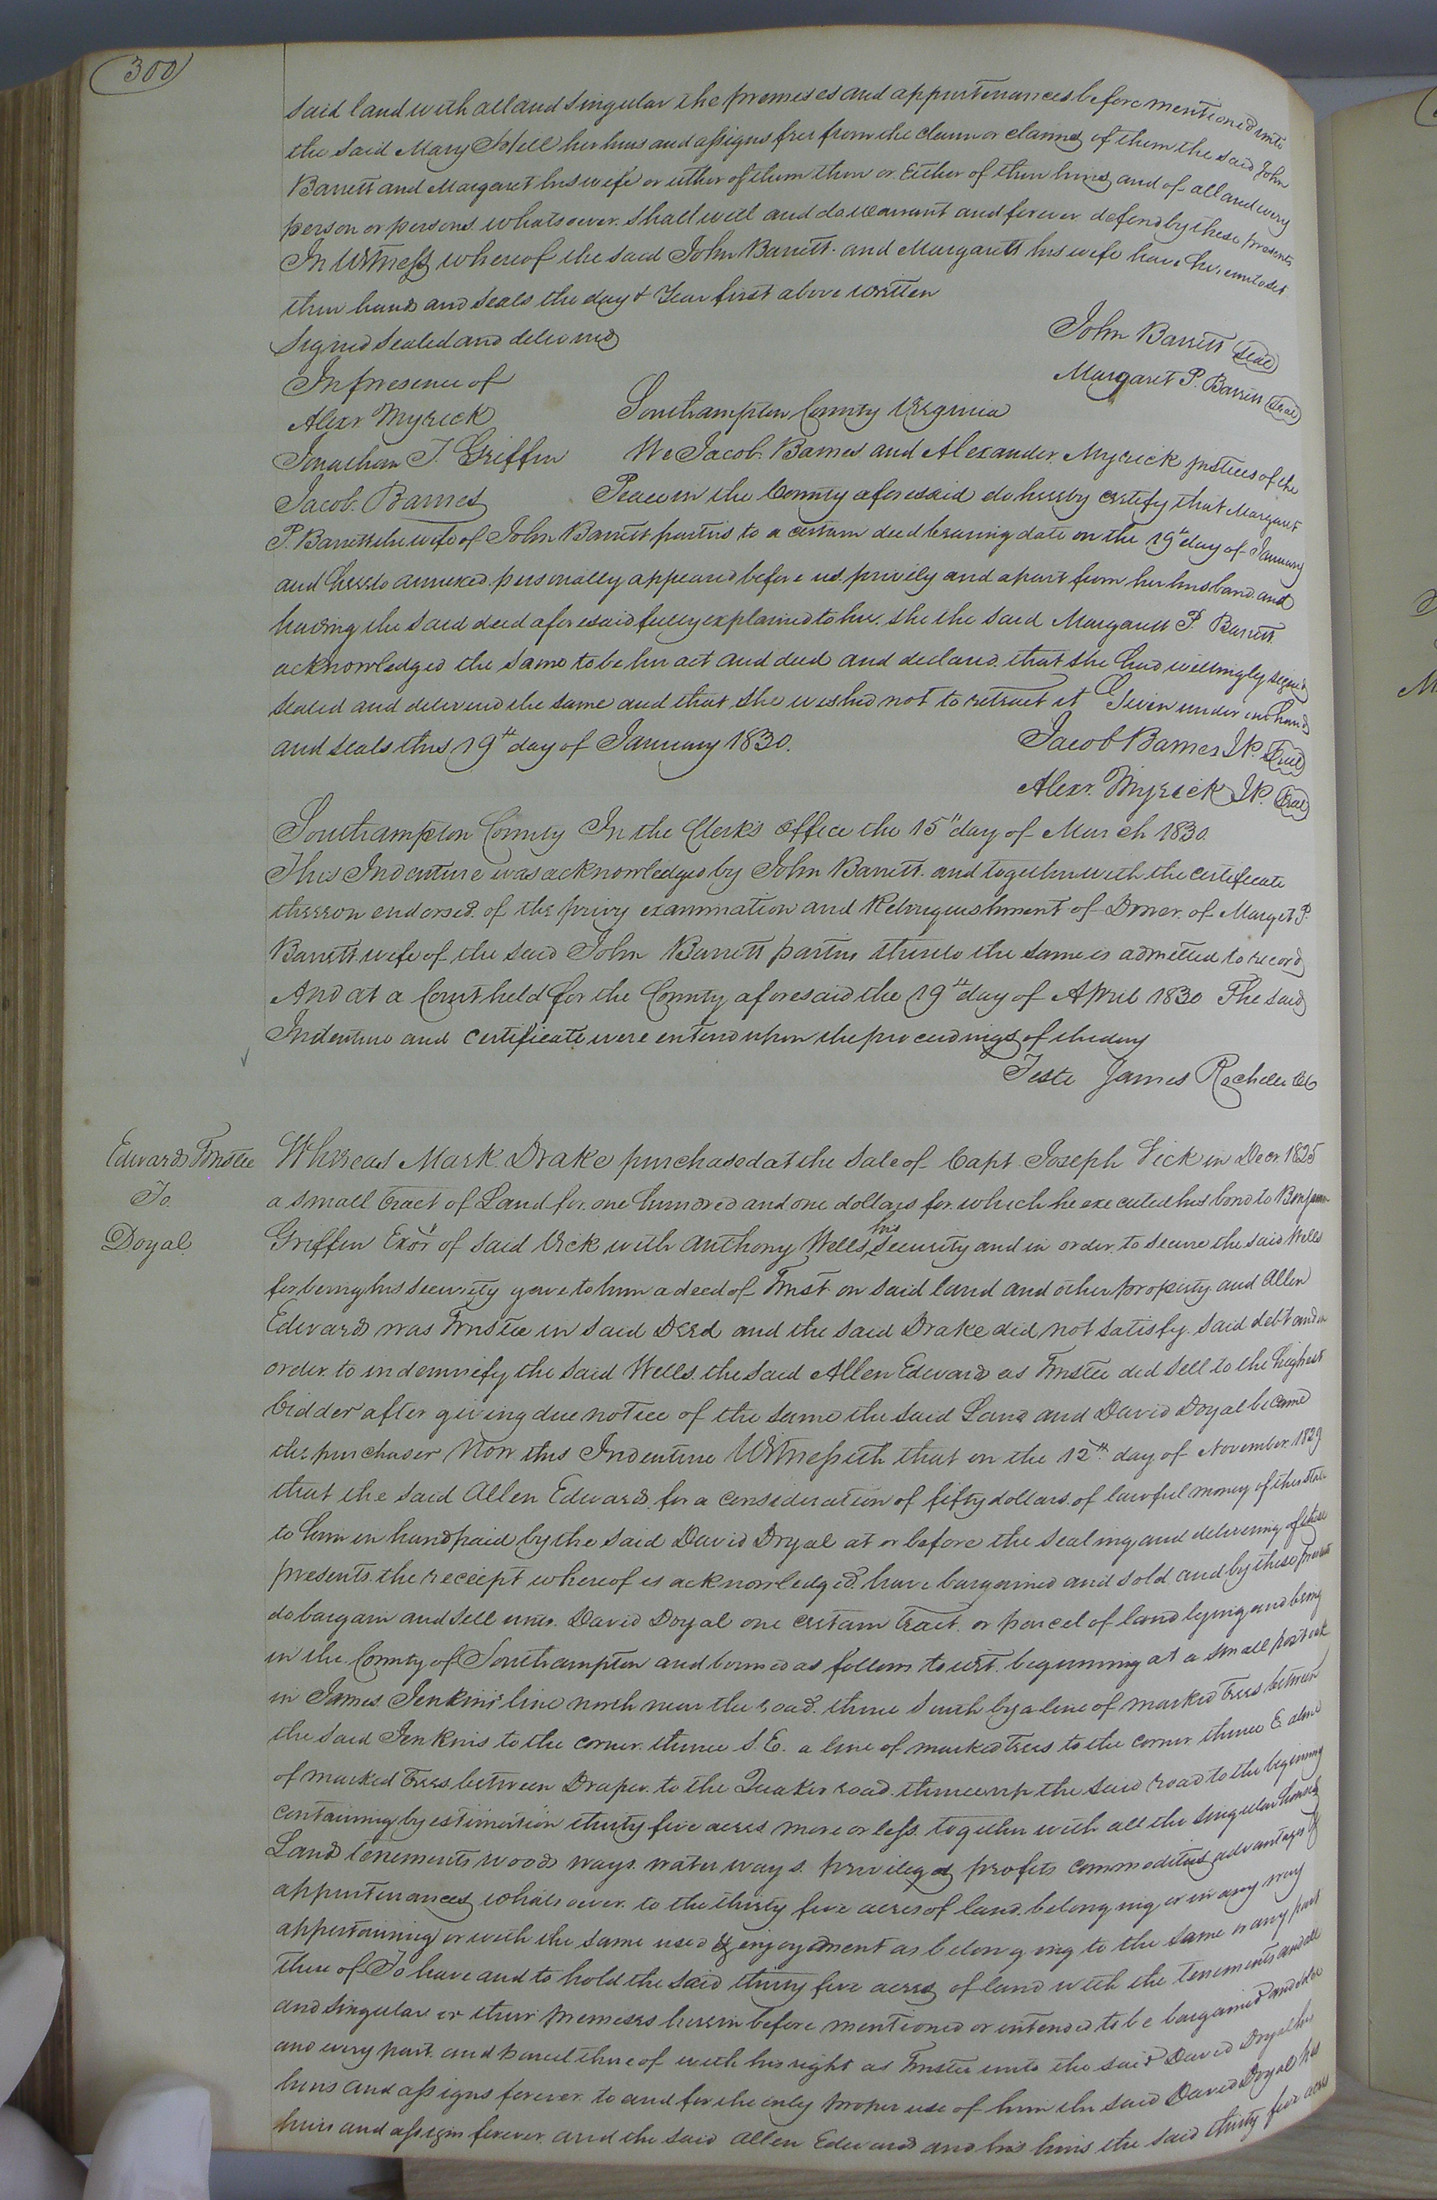 300
said land with all and singular the premises and appurtenances before mentioned unto
the said Mary Hill her heirs and assigns free from the claim or claims of them the said John
Barrett and Margaret his wife or either of them their or Either of their heirs and of all and every
person or persons whatsoever shall will and do warrant and forever defend by these presents
In Witness whereof the said John Barrett and Margarett his wife have hereunto set
their hands and seals the day & Year first above written
Signed sealed and delivered
John Barrett Seal
In presence of
Margaret P. Barrett Seal
Alexr Myrick
Southampton County Virginia
Jonathan T. Griffin
We Jacob Barnes and Alexander Myrick justices of the
Jacob Barnes
Peace in the County aforesaid do hereby certify that Margaret
P. Barrett the wife of John Barrett parties to a certain deed bearing date on the 19th day of January
and hereto annexed personally appeared before us privily and apart from her husband and
having the said deed aforesaid fully explained to her she the said Margarett P. Barrett
acknowledged the same to be her act and deed and declared that she had willingly signed
sealed and delivered the same and that she wished not to retract it Given under our hands
and seals this 19th day of January 1830.
Jacob Barnes JP. Seal
Alexr. Myrick JP. Seal
Southampton County In the Clerk's Office the 15" day of March 1830.
This Indenture was acknowledged by John Barrett and together with the certificate
thereon endorsed of the privy examination and Relinquishment of Dower of Marget P.
Barrett wife of the said John Barrett parties thereto the same is admitted to record
And at a Court held for the County aforesaid the 19th day of April 1830 The said
Indenture and certificate were entered upon the proceedings of the day
Teste James Rochelle CC
Edwards Trustee
To
Doyal
Whereas Mark Drake purchased at the sale of Capt Joseph Vick in Decr 1825
a small tract of Land for one hundred and one dollars for which he executed his bond to Benjamin
Griffin Exor of said Vick with Anthony Wells his security and in order to secure the said Wells
for being his security gave to him a deed of Trust on said land and other property and Allen
Edwards was Trustee in said Deed and the said Drake did not satisfy said debt and in
order to indemnify the said Wells the said Allen Edwards as Trustee did sell to the highest
bidder after giving due notice of the same the said Land and David Doyal became
the purchaser Now this Indenture Witnesseth that on the 12th day of November 1829
that the said Allen Edwards for a consideration of fifty dollars of lawful money of this state
to him in hand paid by the said David Doyal at or before the sealing and delivering of these
presents the receept whereof is acknowledged have bargained and sold and by these presents
do bargain and sell unto David Doyal one certain tract or parcel of land lying and being
in the County of Southampton and bounded as follows to wit beginning at a small post oak
in James Jenkins line north near the road thence South by a line of marked trees between
the said Jenkins to the corner thence S. E. a line of marked trees to the corner thence E. a line
of marked trees between Draper to the Quaker road thence up the said road to the begining
containing by estimation thirty five acres more or less together with all the singular houses
Lands tenements woods ways water ways privileges profits commodities advantages of
appurtenances whatsoever to the thirty five acres of land belonging or in any way
appertaining or with the same used & enjoyment as belonging to the same or any part
there of To have and to hold the said thirty five acres of land with the tenements and all
and singular or their premeses herein before mentioned or intended to be bargained and sold
and every part and parcel thereof with his right as Trustee unto the said David Doyal his
heirs and assigns forever to and for the only proper use of him the said David Doyal his
heirs and assigns forever and the said Allen Edwards and his heirs the said thirty five acres